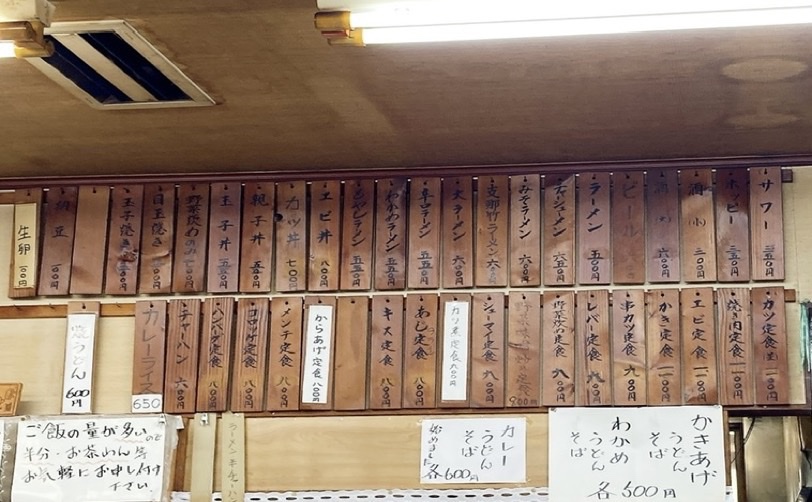 サワー 三五〇円
ホッピー 三五〇円
酒(小) 三〇〇円
酒(大) 六〇〇円
ビール
ラーメン 五〇〇円
チャーシューメン 六五〇円
みそラーメン 六〇〇円
支那竹ラーメン 六〇〇円
大ラーメン 六〇〇円
辛口ラーメン 五五〇円
わかめラーメン 五五〇円
もやしラーメン 五五〇円
エビ丼 八〇〇円
カツ丼 七〇〇円
親子丼 五五〇円
玉子丼 五〇〇円
野菜炒めのみ
目玉焼き 一〇〇円
玉子焼き
納豆 一〇〇円
生卵 一〇〇円
カツ定食
焼き肉定食
エビ定食
かき定食
串カツ定食 九〇〇円
レバー定食
野菜炒め定食
900円
シューマイ定食
カツ煮定食 九〇〇円
あじ定食 八〇〇円
キス定食 八〇〇円
からあげ定食 八〇〇円
メンチ定食 八〇〇円
コロッケ定食
ハンバーグ定食
チャーハン 六〇〇円
カレーライス 650
焼うどん 600円
かきあげ
うどん
そば
わかめ
うどん
そば
各600円
カレー
うどん
そば
始めました
各600円
ラーメン 半チャーハン
ご飯の量が多いので
半分・お茶わん等
お気軽にお申し付け
下さい